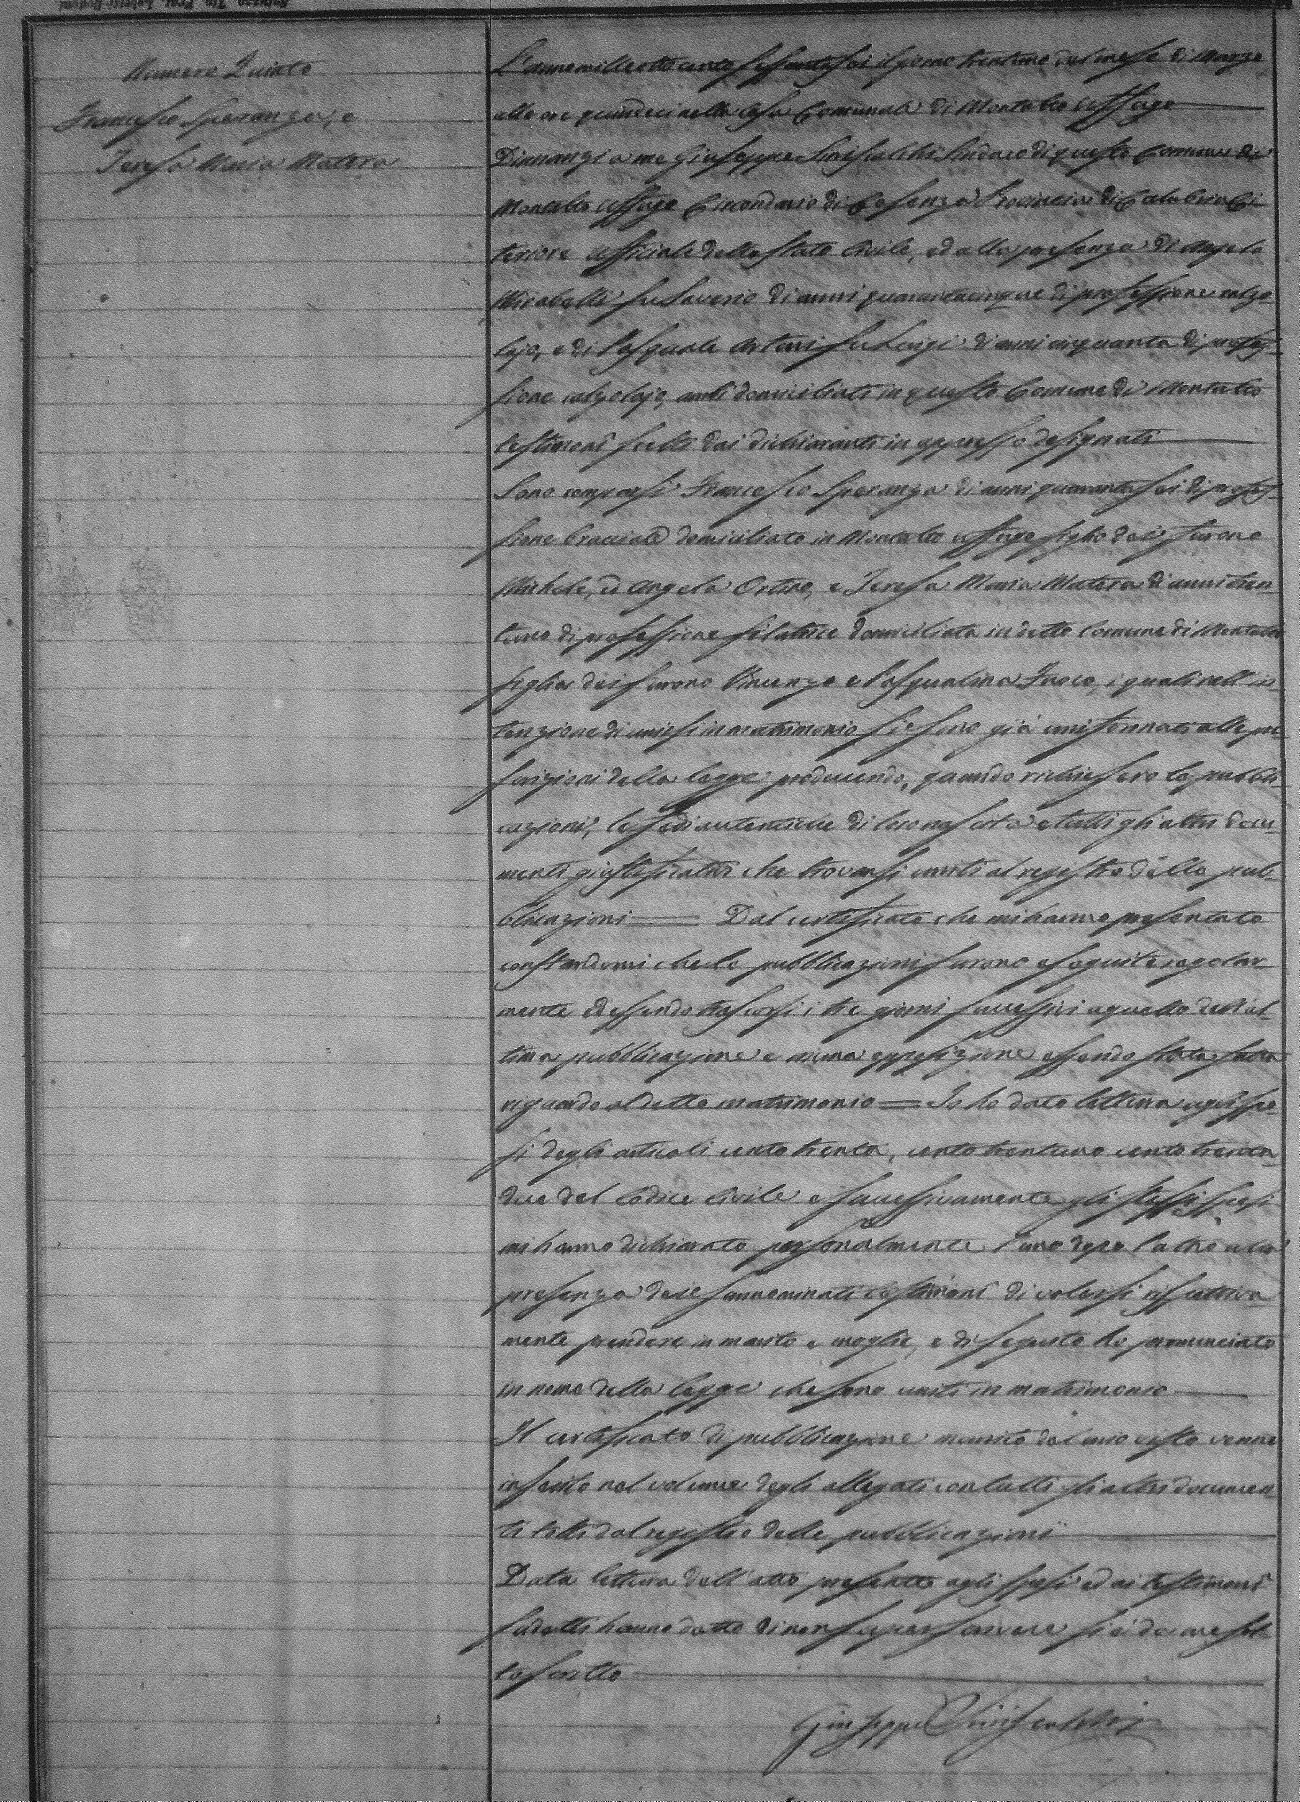 Numero Quinto
Francesco Speranza, e
Teresa Maria Matera
L'anno mille otto cento sessantasei il giorno trentuno del mese di Marzo
alle ore quindici nella Casa Comunale di Montalto Uffugo
Dinnanzi a me Giuseppe Siniscalchi Sindaco di questo Comune di
Montalto Uffugo Circondario di Cosenza Provincia di Calabria Ci-
teriore Ufficiale dello Stato Civile, ed alla presenza di Angelo
Mirabelli fu Saverio di anni quarantacinque di professione calzo-
lajo, e di Pasquale fu Luigi di anni cinquanta di profes-
sione calzolajo, ambi domiciliati in questo Comune di Montalto
testimoni scelti dai dichiaranti in appresso designati
Sono comparsi Francesco Speranza di anni quarantasei di profes-
sione bracciale domiciliato in Montalto Uffugo figlio dei furono
Michele, ed Angela , e Teresa Maria Matera di anni tren-
tuno di professione filatrice domiciliata in detto Comune di Montalto
figlia dei furono Vincenzo e Pasqualina Fuoco, i quali nell'in-
tenzione di unirsi in matrimonio si sono già uniformati alle pre-
scrizioni della legge producendo, quando richiesero le pubbli-
cazioni, le fedi autentiche di loro nascita e tutti gli altri docu-
menti giustificativi che trovansi uniti al registro delle pub-
blicazioni Dal certificato che mi hanno presentato
constandomi che le pubblicazioni furono eseguite regolar-
mente ed essendo trascorsi i tre giorni successivi a quello dell'ul-
tima pubblicazione e niuna opposizione essendo stata fatta
riguardo al detto matrimonio Io ho dato lettura agli spo-
si degli articoli cento trenta, cento trentuno cento trenta-
due del Codice Civile e successivamente gli stessi sposi
mi hanno dichiarato personalmente l'uno dopo l'altro alla
presenza dei sunnominati testimoni di volersi rispettiva-
mente prendere in marito e moglie, e di seguito ho pronunciato
in nome della legge che sono uniti in matrimonio
Il certificato di pubblicazione munito del mio visto venne
inserito nel volume degli allegati con tutti gli altri documen-
ti tolti dal registro delle pubblicazioni
Data lettura dell'atto presente agli sposi ed ai testimoni
sudetti hanno detto di non saper scrivere si è da me sot-
toscritto
Giuseppe Siniscalchi